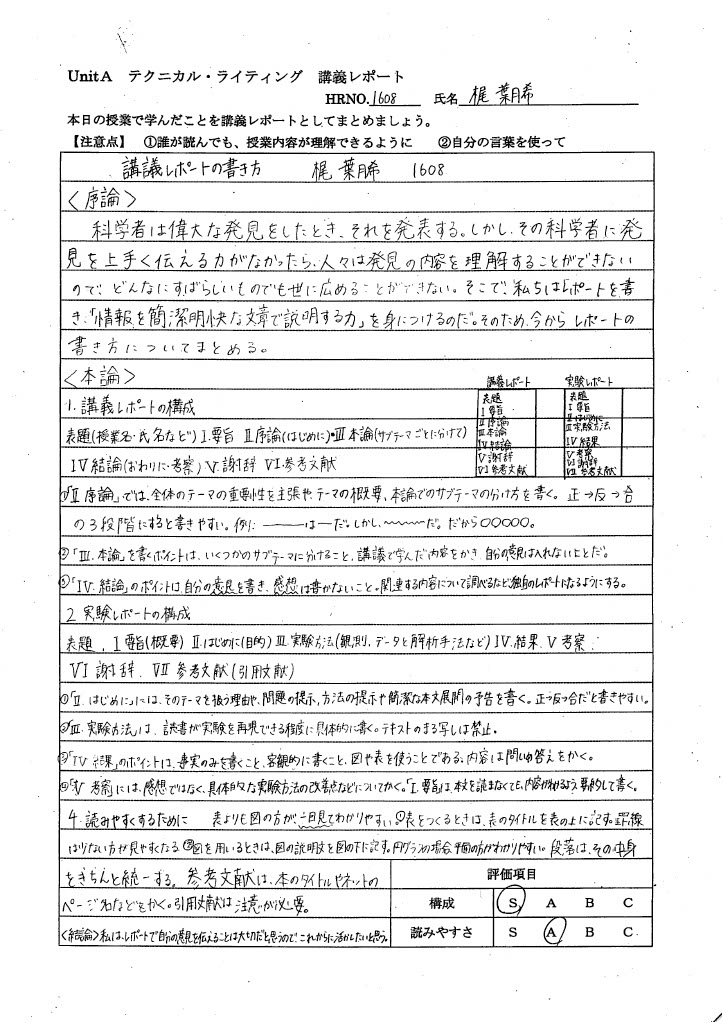 UnitA テクニカル・ライティング 講義レポート
HRNO. 1608 氏名 梶 葉月希
本日の授業で学んだことを講義レポートとしてまとめましょう。
【注意点】 ①誰が読んでも、授業内容が理解できるように ②自分の言葉を使って
講議レポートの書き方 梶 葉月希 1608
〈序論〉
科学者は偉大な発見をしたとき、それを発表する。しかし、その科学者に発
見を上手く伝える力がなかったら、人々は発見の内容を理解することができない
ので、どんなにすばらしいものでも世に広めることができない。そこで、私ちはレポートを書
き、「情報を簡潔明快な文章で説明する力」を身につけるのだ。そのため、今からレポートの
書き方についてまとめる。
〈本論〉
講義レポート 実験レポート
1. 講義レポートの構成
表題 Ⅰ要旨 Ⅱ序論 Ⅲ本論 Ⅳ結論 Ⅴ謝辞 Ⅵ参考文献
表題 Ⅰ要旨 Ⅱはじめに Ⅲ実験方法 Ⅳ結果 Ⅴ考察 Ⅵ謝辞 Ⅶ参考文献
表題(授業名・氏名など) Ⅰ.要旨 Ⅱ序論(はじめに)・Ⅲ本論(サブテーマごとに分けて)
Ⅳ結論(おわりに・考察) Ⅴ.謝辞 Ⅵ.参考文献
①「Ⅱ序論」では、全体のテーマの重要性を主張や、テーマの概要、本論でのサブテーマの分け方を書く。正→反→合
の3段階にすると書きやすい。例:に ―――は―だ。しかし、〜〜〜だ。だから○○○○○。
②「Ⅲ.本論」を書くポイントは、いくつかのサブテーマに分けること、講議で学んだ内容をかき、自分の意見は入れないことだ。
③「Ⅳ.結論」のポイントは、自分の意見を書き、感想は書かないこと。関連する内容について調べるなど、独自のレポートになるようにする。
2. 実験レポートの構成
表題、Ⅰ要旨(概要) Ⅱ.はじめに(目的) Ⅲ.実験方法(観測、データと解析手法など) Ⅳ.結果、Ⅴ考察、
Ⅵ謝辞、Ⅶ参考文献(引用文献)
①「Ⅱ.はじめに」には、そのテーマを扱う理由や、問題の提示、方法の提示や簡潔な本文展開の予告を書く。正→反→合だと書きやすい。
②「Ⅲ.実験方法」は、読書が実験を再現できる程度に具体的に書く。テキストのまる写しは禁止。
③「Ⅳ結果」のポイントは、事実のみを書くこと、客観的に書くこと、図や表を使うことである。内容は問いの答えをかく。
④「Ⅴ考察」には、感想ではなく、具体的な実験方法の改善点などについてかく。「Ⅰ.要旨」は、本文を読まなくても、内容がわかるよう要約して書く。
4. 読みやすくするために 表よりも図の方が、一目見てわかりやすい。①表をつくるときは、表のタイトルを表の上に記す。罫線
は少ない方が見やすくなる ②図を用いるときは、図の説明文を図の下に記す。円グラフの場合、平面の方がわかりやすい。段落は、その中身
をきちんと統一する。参考文献は、本のタイトルやネットの
ページ名などをかく。引用文献は注意が必要。
〈結論〉私は、レポートで自分の意見を伝えることは大切だと思うので、これからに活かしたいと思う。
評価項目
構成 S A B C
読みやすさ S A B C